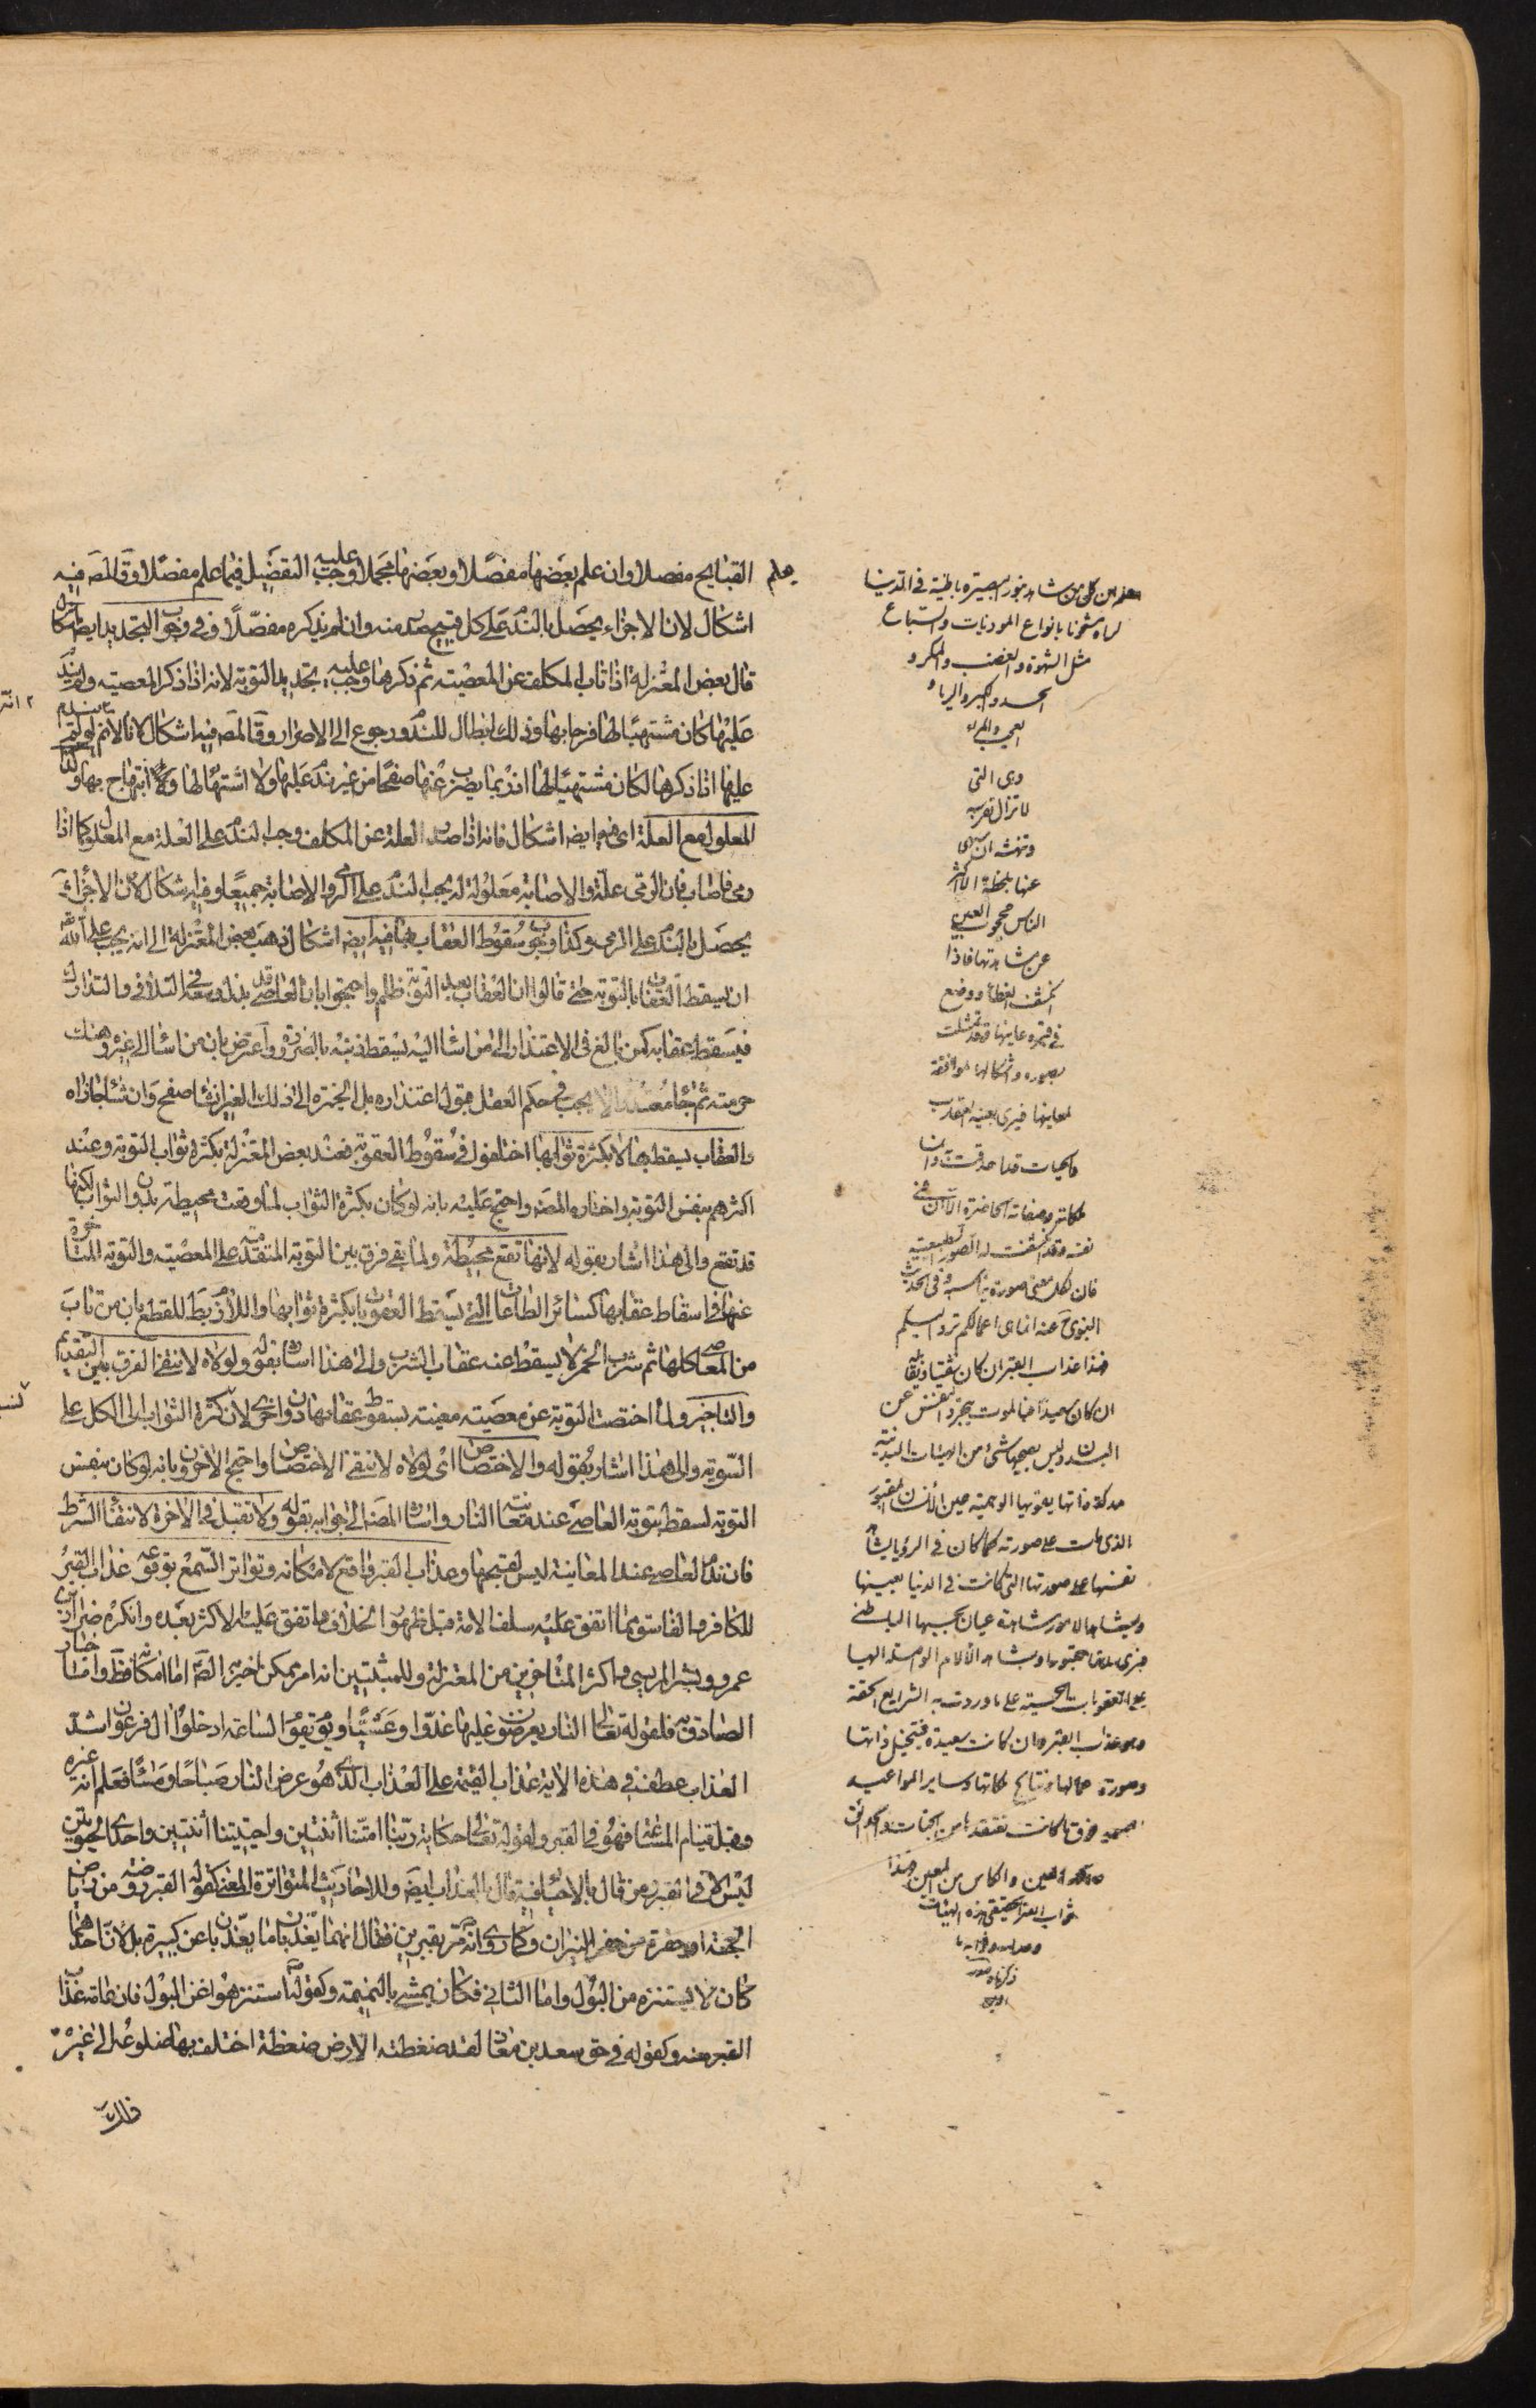 القبايح مفصلا وان علم بعضها مفصلا وبعضها مجملا وجب عليه التفصيل فيما علم مفصلا وقال المصَ فيه
اشكال لان الاجزاء يحصل بالندم على كل قبيح صدر منه وان لم يذكره مفصلا وفي وجوب التجديد ايضا اشكال
قال بعض المعتزلة اذا تاب المكلف عن المعصيته ثم ذكرها وجب عليه تجديد التوبة لانه اذا ذكر المعصيته ولم يندم
عليها كان مشتهيًا لها فرحا بها وذلك ابطال للندم ورجوع الى الاصرار وقال المصَ فيه اشكال لانا لانم لو لم يندم
عليها اذا ذكرها لكان مشتهيًا لها اذ ربما يضرب عنها صفحًا من غير ندم عليها ولا اشتهاء لها ولا ابتهاج بها وكذا
المعلول مع العلة اى فيه ايضا اشكال فانه اذا صدر العلة عن المكلف وجب الندم على العلة مع المعلول كما اذا
رمى فاصاب فان الرمى علة والاصابة معلولة له يجب الندم على الرمى والاصابة جميعًا وفيه اشكال لان الاجزاء
يحصل بالندم على الرمى وكذا وجوب سقوط العقاب بها فيه ايضا اشكال ذهب بعض المعتزلة الى انه يجب على الله
ان يسقط العقاب بالتوبة حتى قالوا ان العقاب بعد التوبة ظلم واحتجوا بان العاصى قد بذل وسعه في التلافى والتدارك
فيسقط عقابه كمن بالغ في الاعتذار الى من اساء اليه يسقط ذنبه بالضرورة واعترض بان من اساء الى غيره وهتك
حرمته ثم جاء معتذرا لا يجب في حكم العقل قبول اعتذاره بل الخيرة الى ذلك الغير ان شاء صفح وان شاء جازاه
والعقاب يسقط بها لا بكثرة ثوابها اختلفوا في سقوط العقوبة فعند بعض المعتزلة بكثرة ثواب التوبة وعند
اكثرهم بنفس التوبة واختاره المصَ واحتج عليه بانه لو كان بكثرة الثواب لما وقعت محبطة بدون الثواب لكنها
قد تقع والى هذا اشار بقوله لانها تقع محبطة ولما بقي فرق بين التوبة المتقدمة على المعصيته والتوبة المتاخرة
عنها في اسقاط عقابها كسائر الطاعات التي تسقط العقوبات بكثرة ثوابها واللازم بط للقطع بان من تاب
من المعاصى كلها ثم شرب الخمر لا يسقط عنه عقاب الشرب والى هذا اشار بقوله ولولاه لانتفى الفرق بين التقديم
والتاخير ولما اختصت التوبة عن معصيته معينة بسقوط عقابها دون اخرى لان كثرة الثواب الى الكل على
السوية والى هذا اشار بقوله والاختصاص اى لولاه لانتفى الاختصاص واحتج الاخرون بانه لو كان بنفس
التوبة لسقط بتوبة العاصى عند معاينة النار واشار المصَ الى جوابه بقوله ولا تقبل في الاخرة لانتفاء الشرط
فان ندم العاصى عند المعاينة ليس لقبحها وعذاب القبر واقع لامكانه وتواتر السمع بوقوعه عذاب القبر
للكافر والفاسق مما اتفق عليه سلف الامة قبل ظهور الخلاف واتفق عليه الاكثر بعده وانكره ضرار بن
عمرو وبشر المريسي واكثر المتاخرين من المعتزلة وللمثبتين انه امر ممكن اخبر به الصادق اما امكانه فظ واما اخبار
الصادق به فلقوله تعالى النار يعرضون عليها غدوا وعشيًا ويوم تقوم الساعة ادخلوا ال فرعون اشد
العذاب عطف في هذه الاية عذاب القيمة على العذاب الذى هو عرض النار صباحًا ومساءً فعلم انه غيره
وقبل قيام الساعة فهو في القبر ولقوله تعالى حكاية ربنا امتنا اثنتين واحييتنا اثنتين واحدى الحيوتين
ليس الا في القبر ومن قال بالاحياء فيه قال بالعذاب ايضَ وللاحاديث المتواترة المعنى كقوله القبر روضة من رياض
الجنة او حفرة من حفر النيران وكما روى انه مر بقبرين فقال انهما يعذبان وما يعذبان عن كبيرة بل لان احدهما
كان لا يستنزه من البول واما الثاني فكان يمشي بالنميمة وكقوله استنزهوا عن البول فان عامة عذاب
القبر منه وكقوله في حق سعد بن معاذ لقد ضغطته الارض ضغطة اختلف بها ضلوعه الى غير
يعلم
كل من شاهد بنور البصيرة باطنه في الدنيا
لراه مشحونا بانواع الموذيات والسباع
مثل الشهوة والغضب والمكر و
الحسد والكبر والرياء
وهى التى
لا تزال تفترسه
وتنهشه ان سهى
عنها بلحظة الا ان اكثر
الناس محجوب العين
عن مشاهدتها فاذا
انكشف الغطاء ووضع
في قبره عاينها وقد تمثلت
بصورها واشكالها الموافقة
لمعانيها فيرى بعينه العقارب
والحيات قد احدقت به وانما
هى ملكاته وصفاته الحاضرة الان في
نفسه وقد انكشفت له الصور الطبيعية
فان لكل معنى صورة تناسبه وفي الحديث
النبوى انما هى اعمالكم ترد اليكم
هذا عذاب القبر ان كان شقيا ويقابله
ان كان سعيدا
البدن وليس يصحبها شئ من الهيئات البدنية
الذى مات على صورته كما كان في الرؤيا
نفسها على صورتها التى كانت في الدنيا بعينها
ويشاهد الامور مشاهدة عيان بحسها الباطنى
الالام الواصلة اليها
على العقوبات الحسية على ما وردت به الشرايع الحقة
وهو عذاب القبر وان كانت سعيدة فيتخيل ذاتها
وصورة اعمالها ونتايج ملكاتها وساير المواعيد
فوق ما كانت تعتقدها من الجنات والحدائق
والكاس من المعين فهذا
ثواب القبر